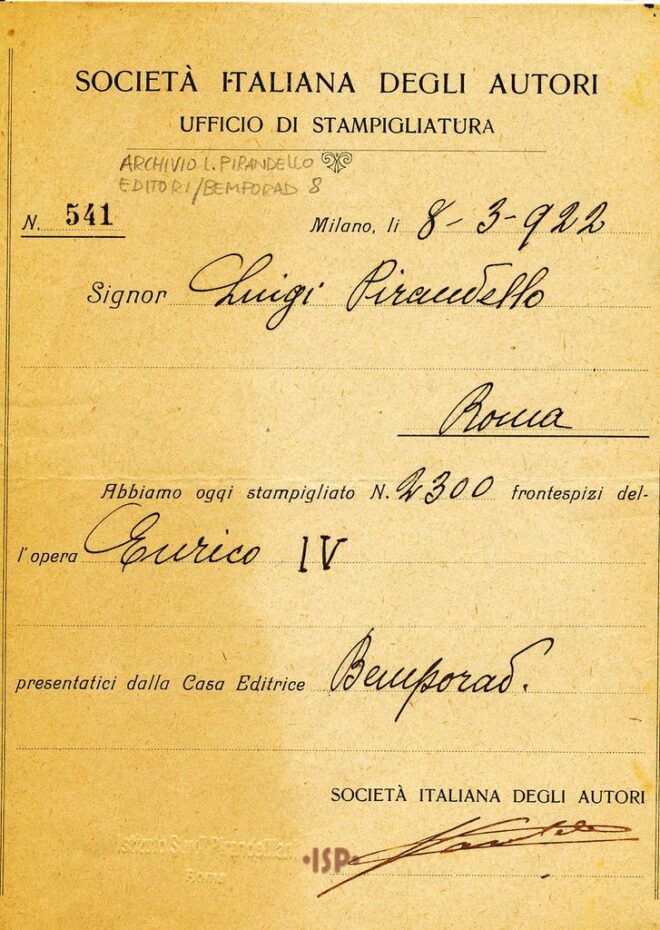 SOCIETÀ ITALIANA DEGLI AUTORI
UFFICIO DI STAMPIGLIATURA
ARCHIVIO L. PIRANDELLO
EDITORI/BEMPORAD 8
N. 541
Milano, li 8-3-922
Signor Luigi Pirandello
Roma
Abbiamo oggi stampigliato N. 2300 frontespizi del-
l'opera Enrico IV
presentatici dalla Casa Editrice Bemporad.
SOCIETÀ ITALIANA DEGLI AUTORI
·ISP·
Roma